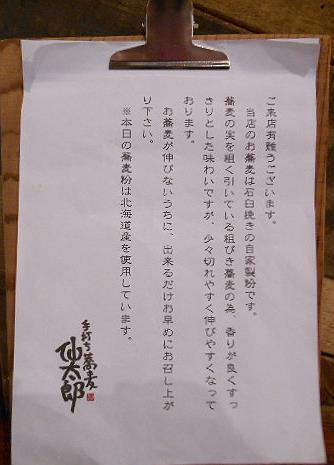 ご来店有難うございます。
当店のお蕎麦は石臼挽きの自家製粉です。
蕎麦の実を粗く引いている粗びき蕎麦の為、香りが良くすっ
きりとした味わいですが、少々切れやすく伸びやすくなって
おります。
お蕎麦が伸びないうちに、出来るだけお早めにお召し上が
り下さい。
※本日の蕎麦粉は北海道産を使用しています。
手打ち蕎麦
仙太郎